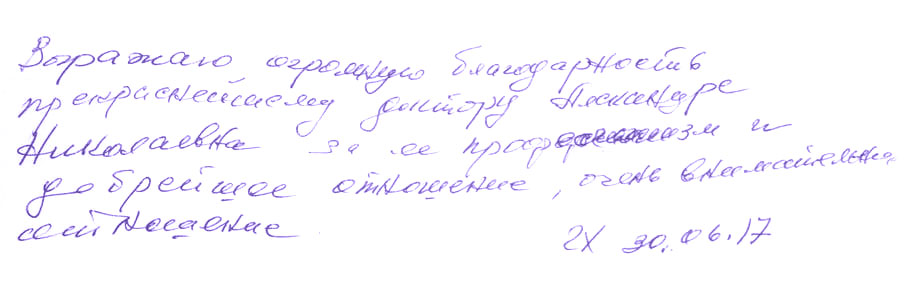 Выражаю огромную благодарность
прекраснейшему доктору Александре
Николаевна за ее проф изм и
добрейшее отношение, очень внимательное
отношение
30.06.17